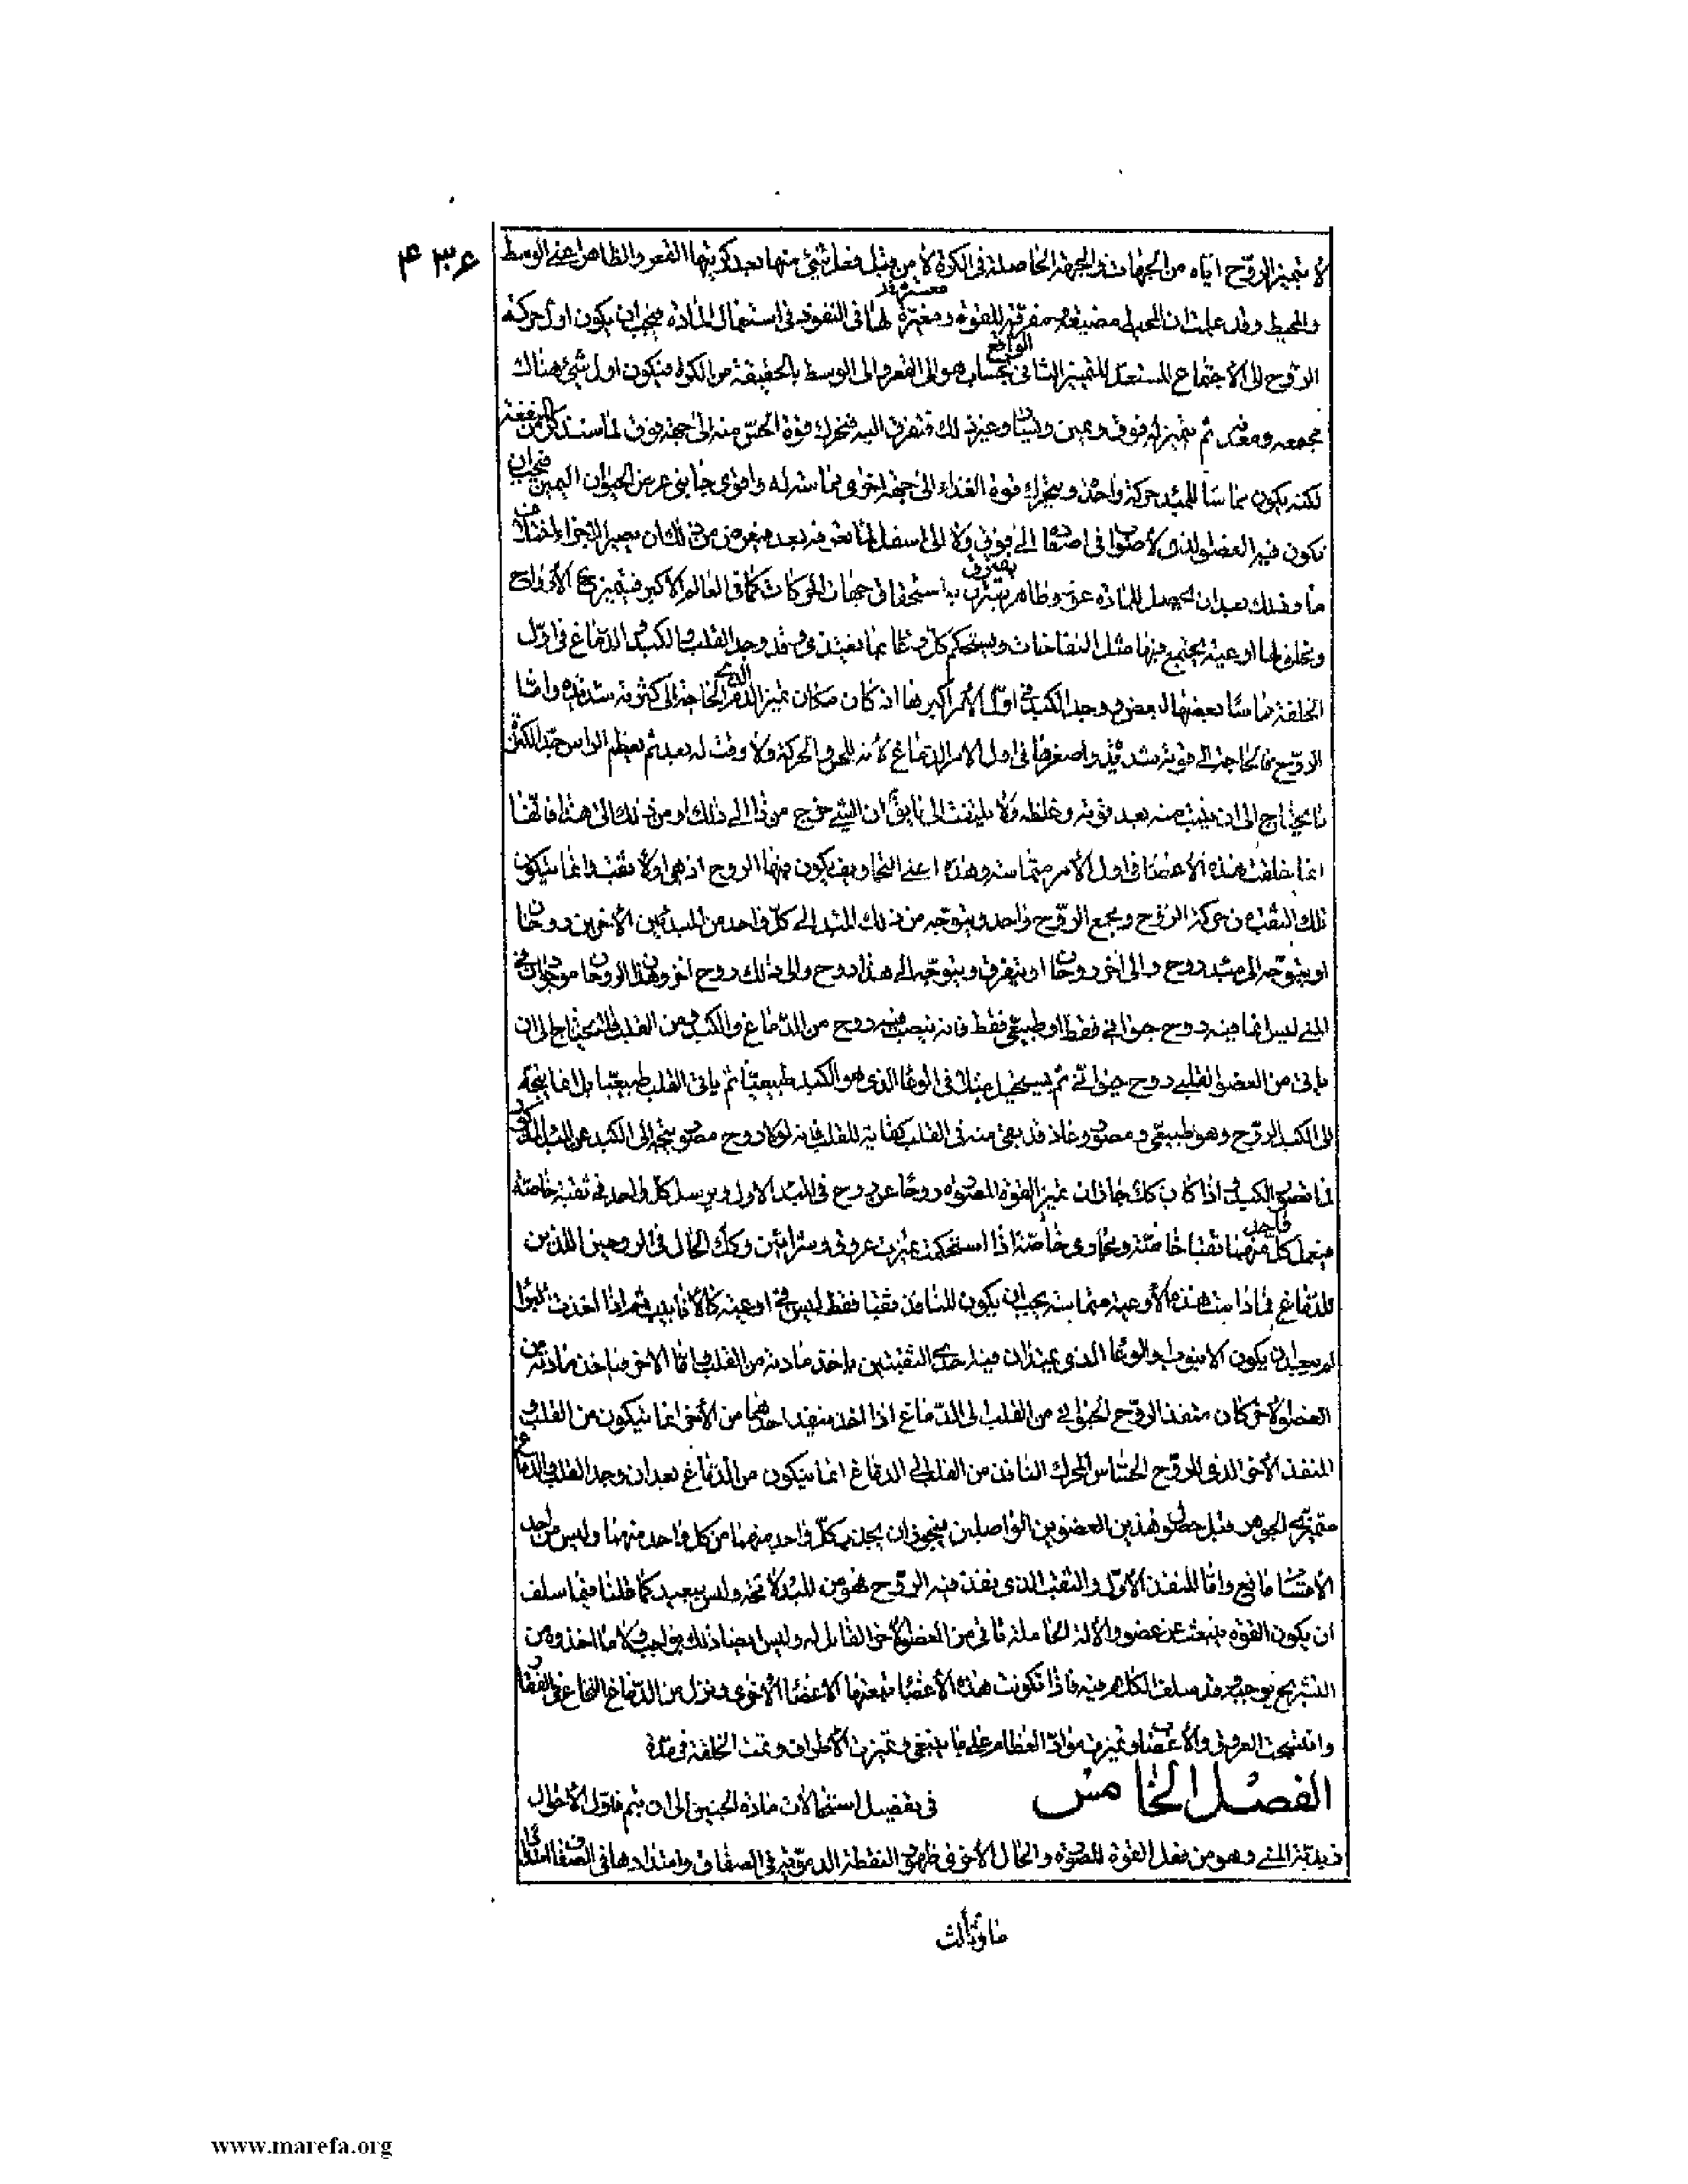 ۴۳۶
لا بتميز الروح اياه من الجهات والجهة الحاصلة فى الكرة لا من قبل فعل شئ منها بعد كريتها القعر والظاهر اعنى الوسط
والمحيط وقد علمت ان المحيط مضيعة مفرقة للقوة ومغيرة لها فى النفوذ فى استعمال المادة فيجب ان يكون اول حركة
الروح الى الاجتماع المستعد للتميز الثانى بحسب الواقع هو الى القعر والى الوسط بالحقيقة من الكرة فيكون اول شئ هناك
مجمعه ومقعره ثم يتميز له فوق ويمين ويسار وغير ذلك فتفرق اليه فتحرك قوة الحس منه الى جهة فوق لما سنذكر من المنفعة
لكنه يكون مماسا للمبدء حركة واحدة ويتحرك قوة الغذاء الى جهة اخرى مماسة له واقوى جانبى عرض الحيوان اليمين فيجب ان
يكون فيه العضو الذى
ما وذلك بعد ان يحصل للمادة عمق وظاهر يفترق به استحقاق جهات الحركات كما فى العالم الاكبر فيتميز الارواح
ويخلق لها اوعية يجتمع فيها مثل النفاخات ويستحكم كل وعا بما يغتذى وقد وجد القلب والكبد والدماغ فى اول
الخلقة مماسا بعضها لبعض ووجد الكبد فى اول الامر اكبرها اذ كان مكان تميز الدم الذى الحاجة الى كثرته شديدة واما
الروح فالحاجة الى قوته شديدة واصغرها فى اول الامر الدماغ لانه للحس والحركة ولا وقت له بعد ثم يعظم الراس جدا لكثرة
ما يحتاج الى ان ينبت منه بعد قوته وغلظه ولا يلتفت الى ما يق ان الشئ خرج من ذا الى ذلك او من ذلك الى هذا فانها
انما خلقت هذه الاعضا فى اول الامر متماسة وهذه اعنى التجاويف يكون فيها الروح اذ هى اولا ثقب وانما يتكون
تلك الثقب من حركة الروح ويجمع الروح واحد ويتوجه من ذلك المبدء الى كل واحد من المبدئين الاخرين روحان
او يتوجه الى مبدء روح والى اخر روحان او يتفرق ويتوجه الى هذا روح والى ذلك روح اخر وهذان الروحان موجودان فى
المنى ليس انما فيه روح حيوانى فقط او طبيعى فقط فانه ينصب فيه روح من الدماغ والكبد ومن القلب فلا يحتاج الى ان
ياتى من العضو القلبى روح حيوانى ثم يستحيل عند فى الوعا الذى هو الكبد طبيعيا ثم ياتى القلب طبيعيا بل انما يتجه
الى الكبد الروح وهو طبيعى ومصور وغاذ قد بقى منه فى القلب كفاية للقلب فانه لولا روح مصور يتجه الى الكبد عن المبدء المذكور
لما تصور الكبد واذا كان كك جاز ان تميز القوة المصورة روحا عن روح فى المبدء الاول ويرسل كل واحد فى ثقبة خاصة
فيعمل كل واحد منهما ثقبا خاصة وتجاويف خاصة اذا استحكمت ميزت عروق وشرائين وكك الحال فى الروحين اللذين
للدماغ فما ذا مت هذه الاوعية متماسة يجب ان يكون للنافذ ثقبا فقط ليس فى اوعية كالانابيب ثم اذا اخذت
لم يبعد ان يكون الانبوب والوعا الذى يمتد ان فيه احدى الثقبتين ياخذ مادته من القلب واما الاخر فياخذ مادته من
العضو الاخر كان منفذ الروح الحيوانى من القلب الى الدماغ اذا اخذ منفذ احدهما من الاخر انما يتكون من القلب و
المنفذ الاخر الذى للروح الحساس المحرك النافذ من القلب الى الدماغ انما يتكون من الدماغ بعد ان وجد القلب والدماغ
متميزى الجوهر قبل حصول هذين العضوين الواصلين فيجوز ان يجذب كل واحد منهما من كل واحد منهما وليس من احد
الاقسام مانع واما المنفذ الاول والثقب الذى نفذ فيه الروح فهو من المبدء لا محة وليس ببعيد كما قلنا فيما سلف
ان يكون القوة ينبعث عن عضو والالة الحاملة تاتى من العضو الاخر القابل له وليس ايضا ذلك بواجب ولا ما اخذوه من
التشريح يوجبه قد سلف الكلام فيه فاذا تكونت هذه الاعضا تبعتها الاعضا الاخرى ونزل من الدماغ النخاع فى الفقار
وانتسجت العروق والاعصاب وتميزت مواد العظام على ما ينبغى وتميزت الاطراف وتمت الخلقة فى مدة
الفصل الخامس فى تفصيل استحالات مادة الجنين الى ان يتم فاول الاحوال
زبدية المنى وهو من فعل القوة المصورة والحال الاخرى ظهور النقطة الدموية فى الصفاق وامتدادها فى الصفاق امتدادا
ما وثالث
www.marefa.org